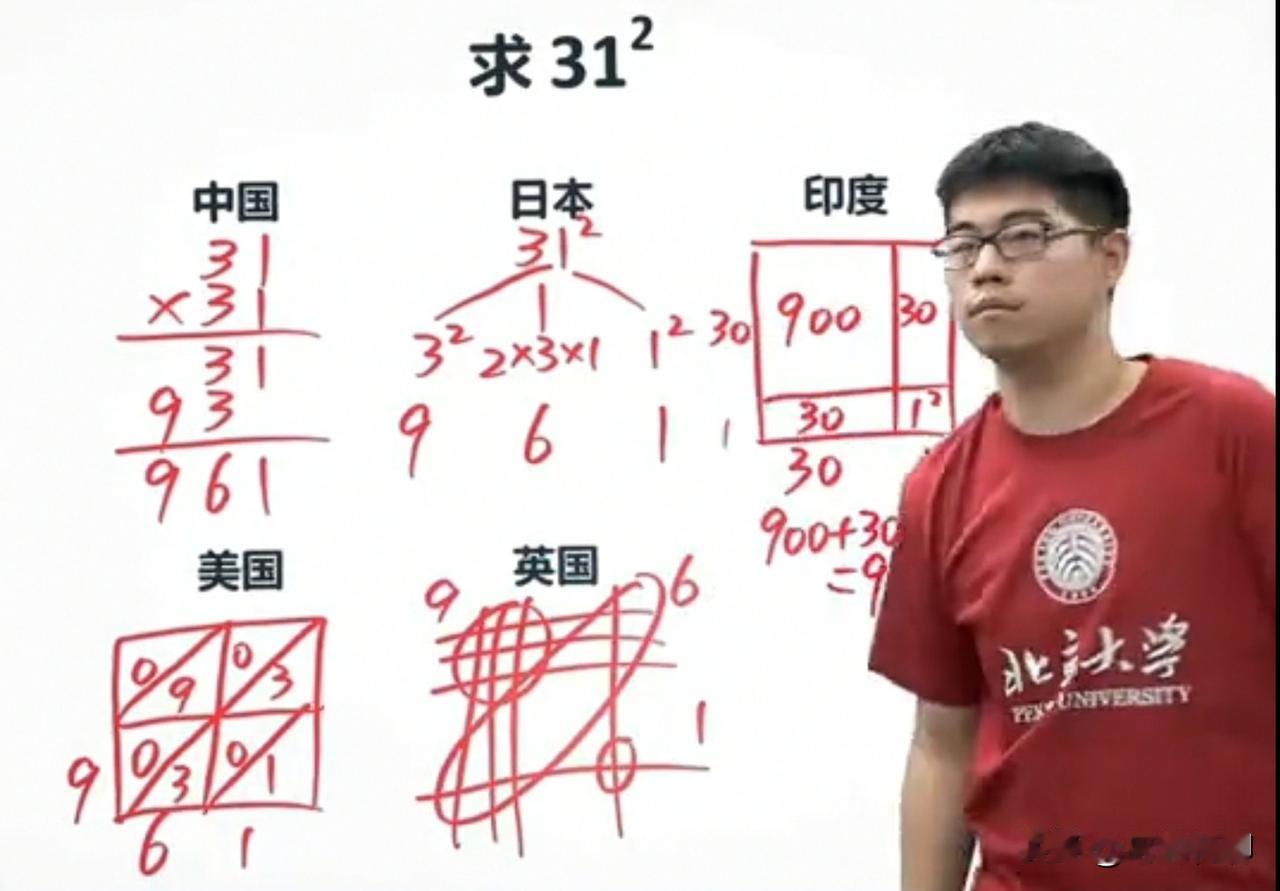 求 31²
中国
31
×31
31
93
961
日本
31²
3² 2×3×1 1²
9 6 1
印度
30 900 30
1 30 1²
30
900+30
=9
美国
0/9 0/3
9 0/3 0/1
6 1
英国
9 6
1
北京大学
UNIVERSITY